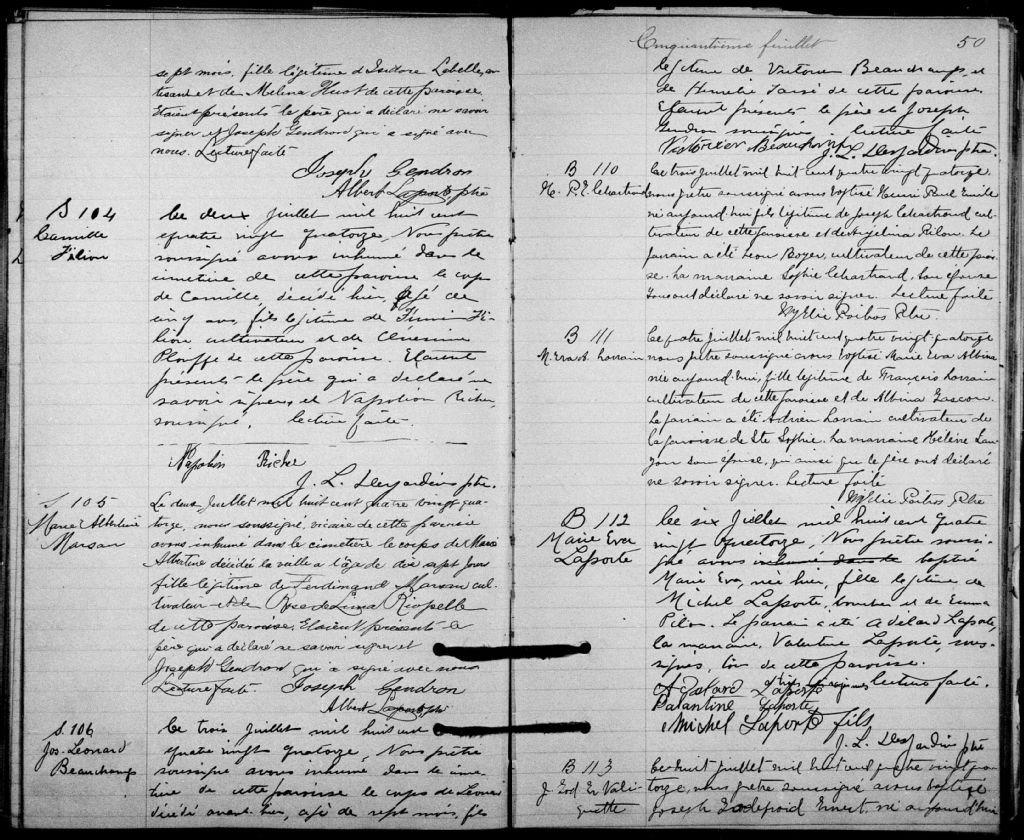 sept mois, fille légitime d'Isidore Labelle, ar
tisan et de Melina Huot de cette paroisse.
Etaient présents le père qui a déclaré ne savoir
signer et Joseph Gendron qui a signé avec
nous. Lecture faite
Joseph Gendron
Albert Laporte ptre
S 104
Camille
Filion
Le deux Juillet mil huit cent
quatre vingt quatorze, Nous prêtre
soussigné avons inhumé dans le
cimetière de cette paroisse le corps
de Camille, décédé hier, agé de
cinq ans, fils légitime de Fi-
lion cultivateur et de
Plouffe de cette paroisse. Etaient
présents le père qui a déclaré ne
savoir signer, et Napoléon Richer,
soussigné, lecture faite.
Napoléon Richer
J. L. Desjardins ptre.
S 105
Marie Albertine
Marsan
Le deux Juillet mil huit cent quatre vingt qua
torze, nous soussigné, vicaire de cette paroisse
avons inhumé dans le cimetière le corps de Marie
Albertine décédée la veille à l'âge de dix sept jours
fille légitime de Ferdinand Marsan cul
tivateur et de Rose de Lima Riopelle
de cette paroisse. Etaient présents le
père qui a déclaré ne savoir signer et
Joseph Gendron qui a signé avec nous
Lecture faite. Joseph Gendron
Albert Laporte ptre
S. 106
Jos. Leonard
Beauchamp
Le trois Juillet mil huit cent
quatre vingt quatorze, Nous prêtre
soussigné avons inhumé dans le cime
tière de cette paroisse le corps de Léonard
décédé avant hier, agé de sept mois, fils
Cinquantième feuillet 50
légitime de Victorien Beauchamp, et
de de cette paroisse
Etaient présents le père et Joseph
Gendron soussignés. lecture faite
Victorien Beauchamp
J. L. Desjardins ptre.
B 110
H. P. E. Chartrand
Le trois juillet mil huit cent quatre vingt quatorze
nous prêtre soussigné avons baptisé Henri Paul Emile
né aujourd'hui fils légitime de Joseph Chartrand cul-
tivateur de cette paroisse et de Angelina Pilon. Le
parrain a été Leon Boyer, cultivateur de cette parois
se. La marraine Sophie Chartrand, son épouse
tous ont déclaré ne savoir signer. Lecture faite
Elie Ptre.
B 111
M. Eva A. Lorrain
Le quatre Juillet mil huit cent quatre vingt-quatorze
nous prêtre soussigné avons baptisé Marie Eva Albina
née aujourd'hui, fille légitime de François Lorrain
cultivateur de cette paroisse et de Albina Gascon.
Le parrain a été Adrien Lorrain cultivateur de
la paroisse de Ste Sophie. La marraine Hélène Lau
zon son épouse, qui ainsi que le père ont déclaré
ne savoir signer. Lecture faite
Elie Ptre
B 112
Marie Eva
Laporte
Le six Juillet mil huit cent quatre
vingt quatorze, Nous prêtre soussi-
gné avons inhumé dans le baptisé
Marie Eva, née hier, fille légitime de
Michel Laporte, boucher et de Emma
Pilon. Le parrain a été Adelard Laporte,
la marraine, Valentine Laporte, sous-
signés, tous de cette paroisse.
lecture faite.
Adelard Laporte
Valantine Laporte
Michel Laporte fils
J. L. Desjardins ptre
B 113
J. God. Er. Vali-
quette
Le huit juillet mil huit cent quatre vingt qua
torze, nous prêtre soussigné avons baptisé
Joseph Godefroid Ernest né aujourd'hui